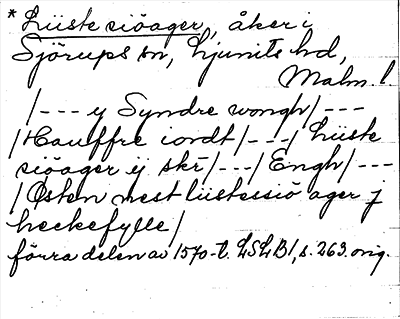 * Liiste siöager, åker i
Sjörups sn, Ljunits hd,
Malm. l.
/--- y Syndre wongh/---
/Hauffre iordt/---/ Liiste
siöager ij skr̄/---/Engh/---
/Østen nest liistessiö ager j
heckefylle/
förra delen av 1570-t. LSLB1, s. 263. orig.